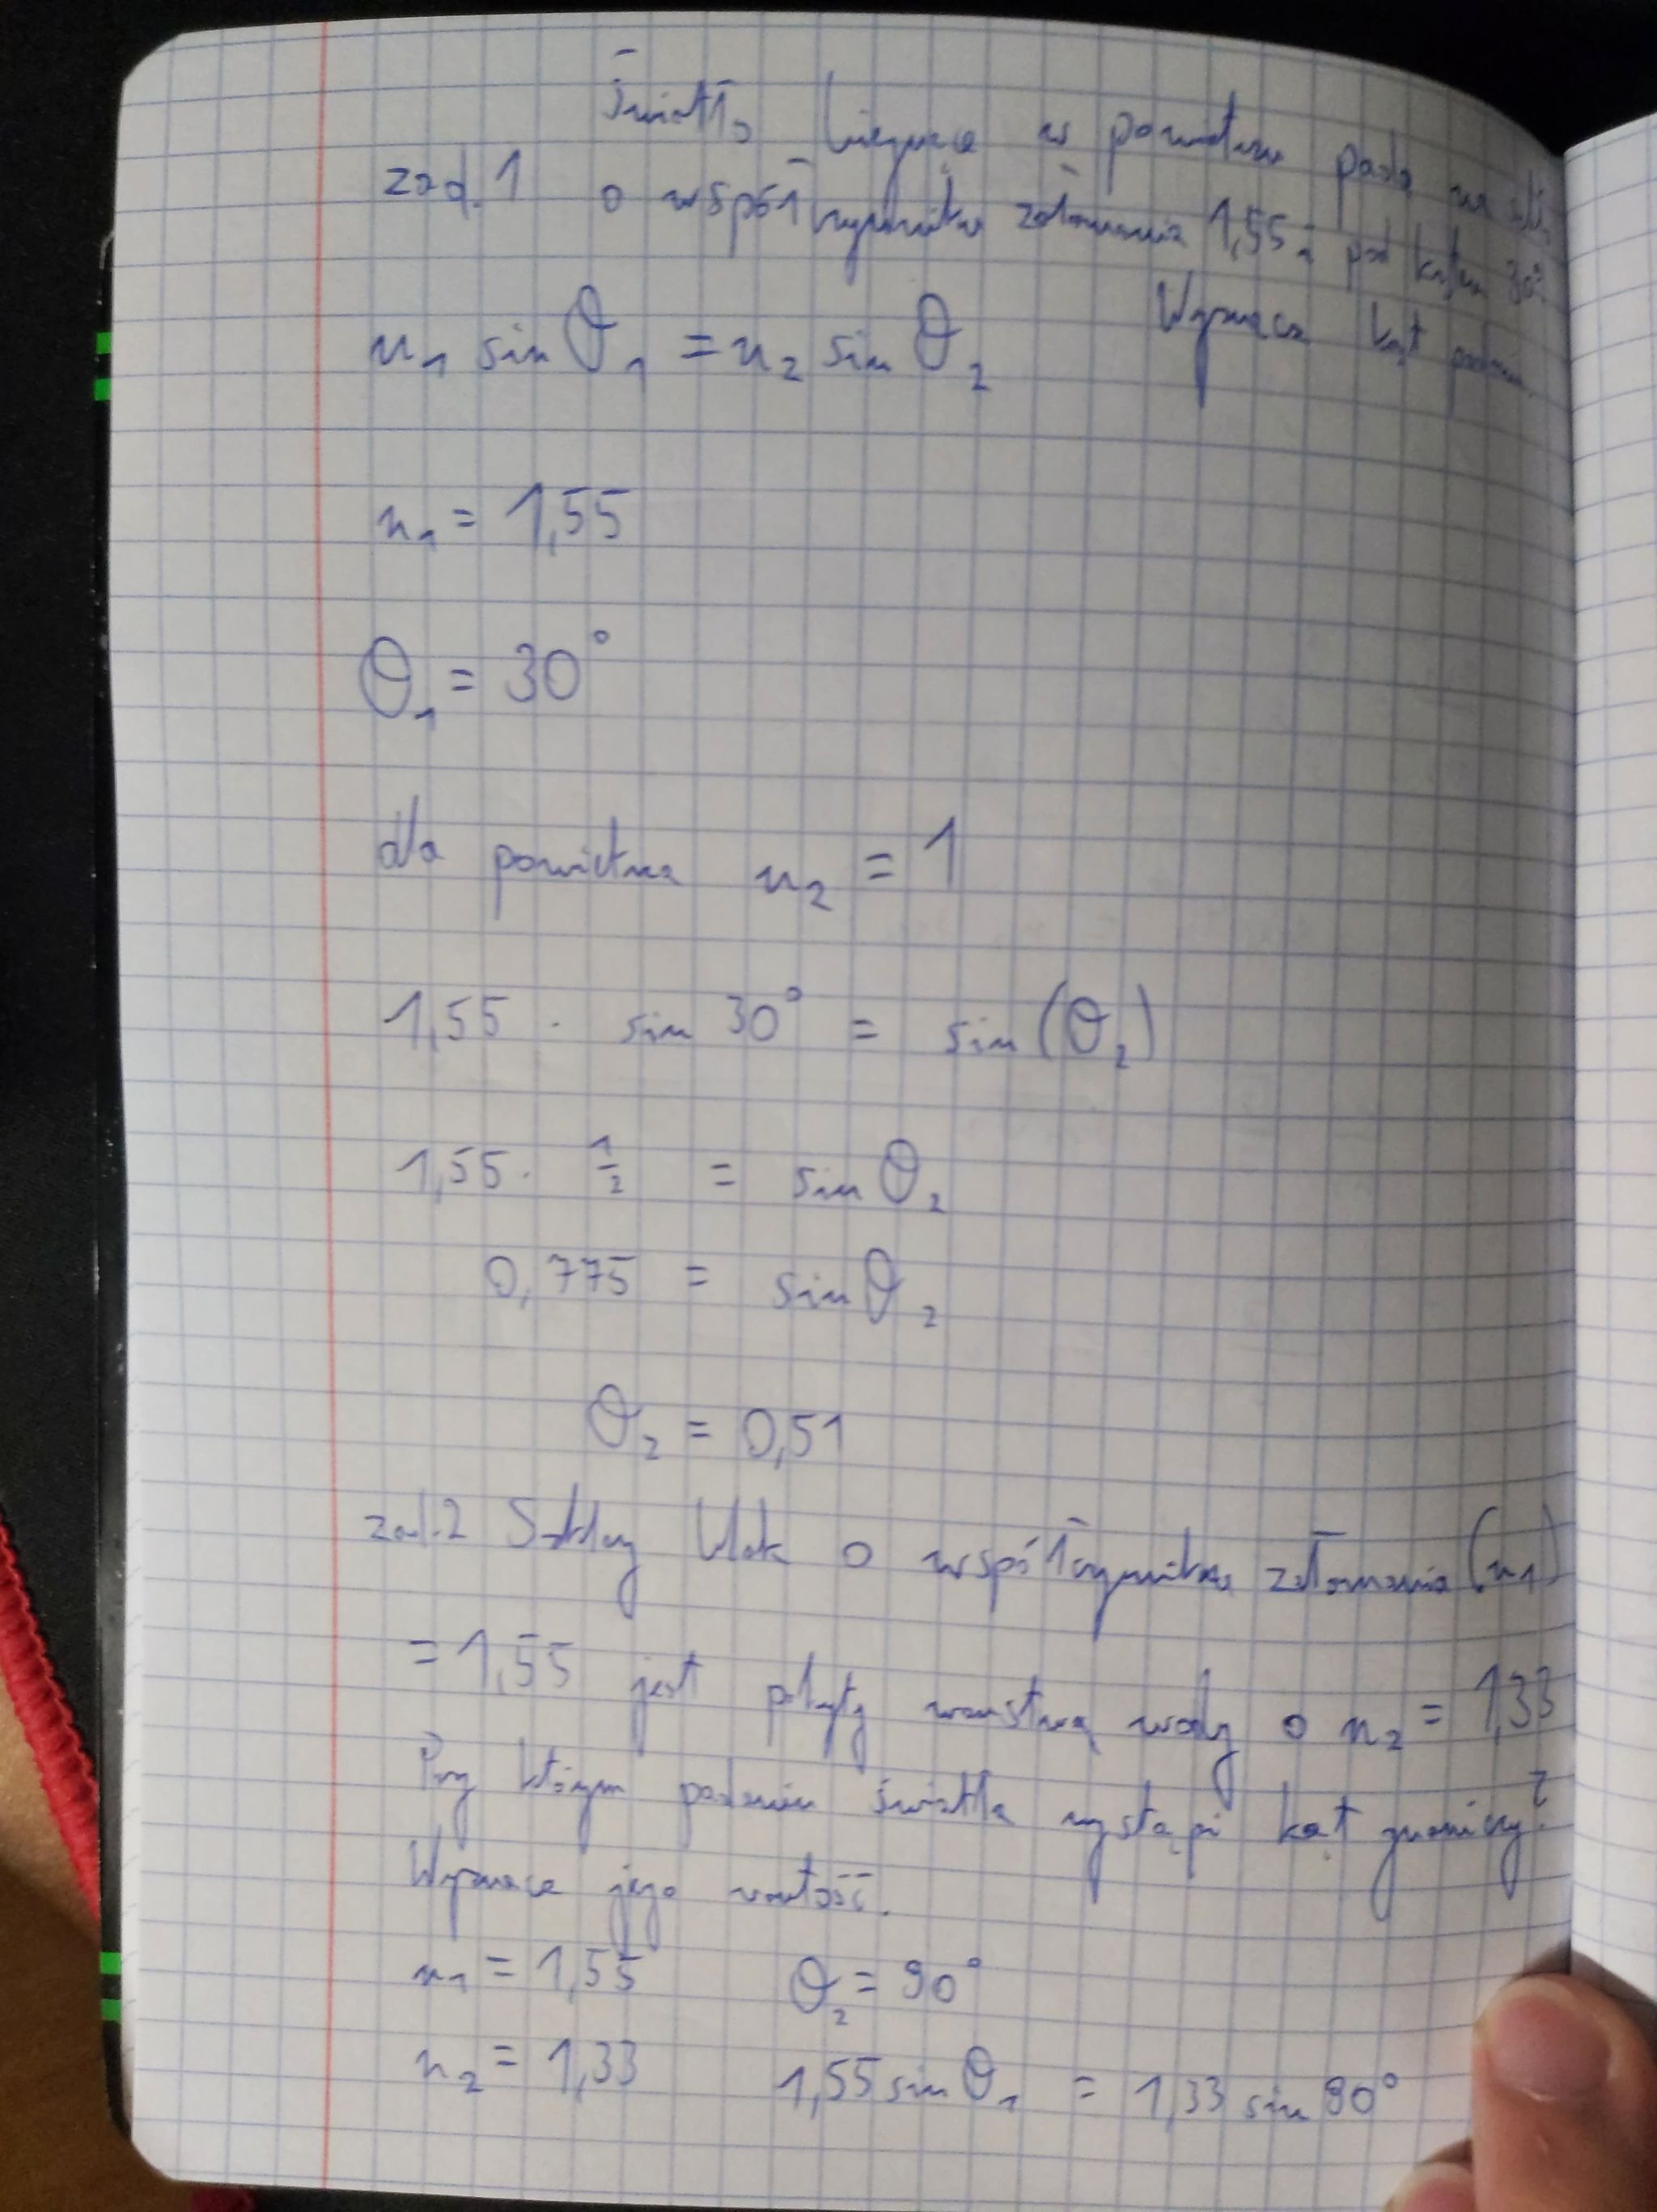 Światło biegnące w powietrzu pada na
zad. 1 o współczynniku załamania 1,55 pod kątem 30°
Wyznacz kąt
n₁ sin θ₁ = n₂ sin θ₂
n₁ = 1,55
θ₁ = 30°
dla powietrza n₂ = 1
1,55 · sin 30° = sin(θ₂)
1,55 · 1/2 = sin θ₂
0,775 = sin θ₂
θ₂ = 0,51
zad. 2 Szklany blok o współczynniku załamania (n₁)
= 1,55 jest pokryty warstwą wody o n₂ = 1,33
Przy którym padaniu światła wystąpi kąt graniczny?
Wyznacz jego wartość.
n₁ = 1,55 θ₂ = 90°
n₂ = 1,33 1,55 sin θ₁ = 1,33 sin 90°